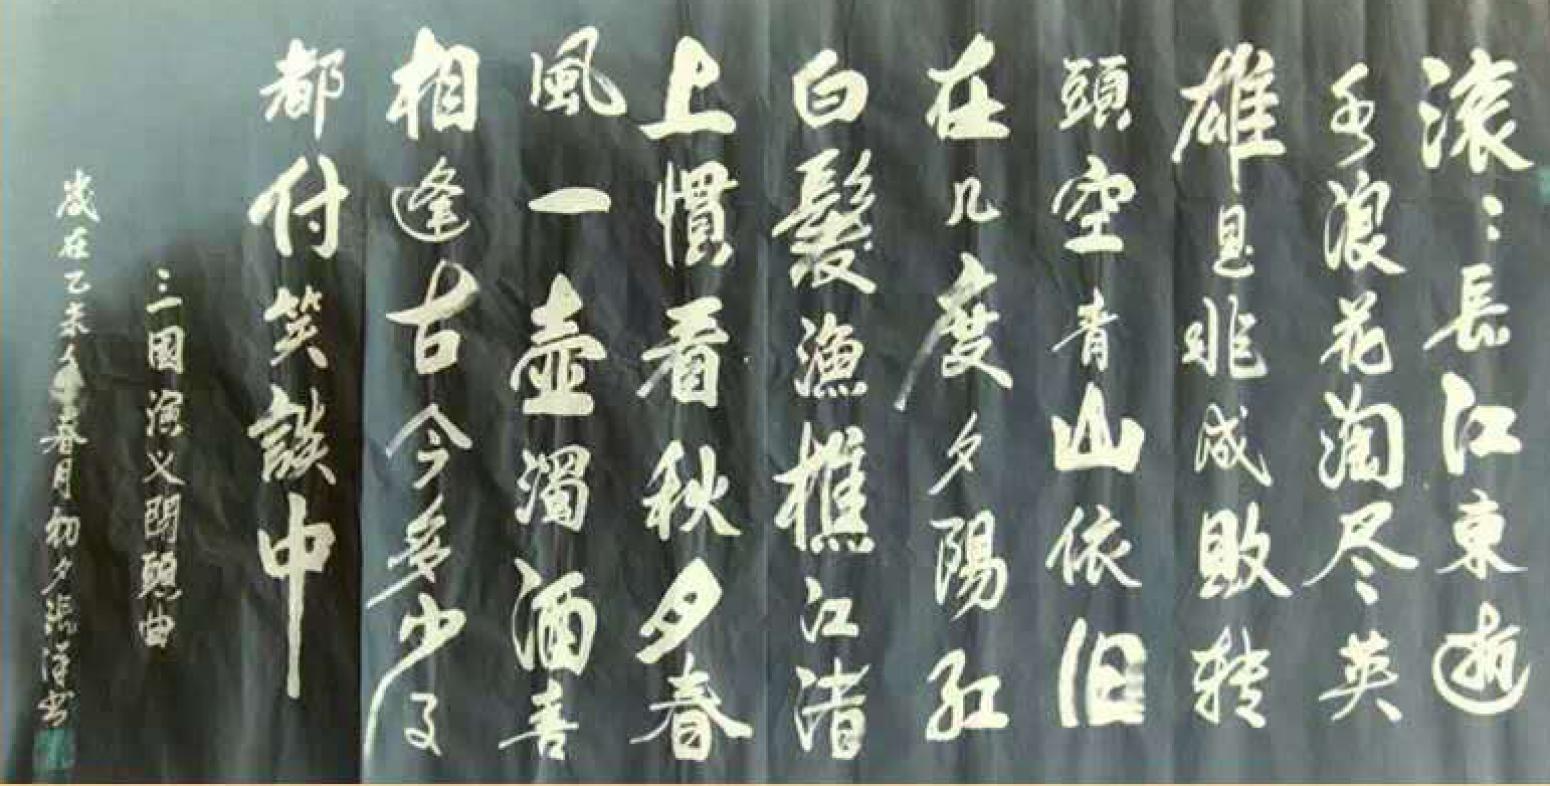 滚〻長江東逝
水浪花淘尽英
雄是非成敗转
頭空青山依旧
在几度夕陽红
白髮漁樵江渚
上慣看秋夕春
風一壺濁酒喜
相逢古今多少事
都付笑談中
三國演义開題曲
歲在乙未年春月初夕张洋书